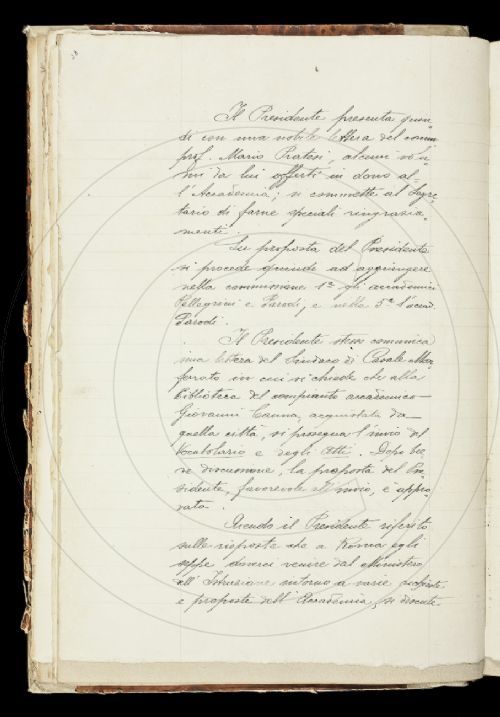 Il Presidente presenta quin-
di con una nobile lettera del comm.
prof. Mario Pratesi, alcuni volu-
mi da lui offerti in dono al-
l'Accademia; si commette al Segre-
tario di farne speciali ringrazia-
menti.
Su proposta del Presidente
si procede quindi ad aggiungere
nella commissione 1ª gli accademici
Pellegrini e Parodi, e nella 5ª l'accad.
Parodi.
Il Presidente stesso comunica
una lettera del Sindaco di Casale Mon-
ferrato in cui si chiede che alla
biblioteca del compianto accademico
Giovanni Canna, acquistata da
quella città, si prosegua l'invio del
Vocabolario e degli Atti. Dopo bre-
ve discussione, la proposta del Pre-
sidente, favorevole all'invio, è appro-
vata.
Avendo il Presidente riferito
sulle risposte che a Roma egli
seppe doversi venire dal Ministero
dell'Istruzione intorno a varie richieste
e proposte dell'Accademia, si discute